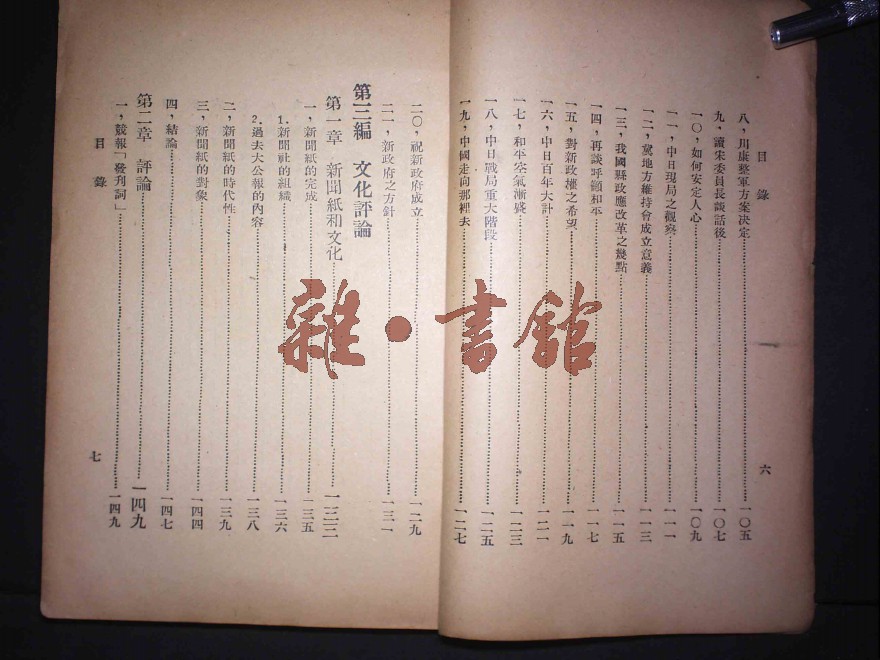 目錄
八，川康整軍方案決定……一〇五
九，讀宋委員長談話後……一〇七
一〇，如何安定人心……一〇九
一一，中日現局之觀察……一一一
一二，冀地方維持會成立意義……一一三
一三，我國縣政應改革之幾點……一一五
一四，再談呼籲和平……一一七
一五，對新政權之希望……一一九
一六，中日百年大計……一二一
一七，和平空氣漸盛……一二三
一八，中日戰局重大階段……一二五
一九，中國走向那裡去……一二七
六
二〇，祝新政府成立……一二九
二一，新政府之方針……一三一
第三編 文化評論
第一章 新聞紙和文化……一三三
一，新聞紙的完成……一三五
1.新聞社的組織……一三六
2.過去大公報的內容……一三八
二，新聞紙的時代性……一三九
三，新聞紙的對象……一四四
四，結論……一四七
第二章 評論……一四九
一，競報「發刊詞」……一四九
目錄
七
雜·書館